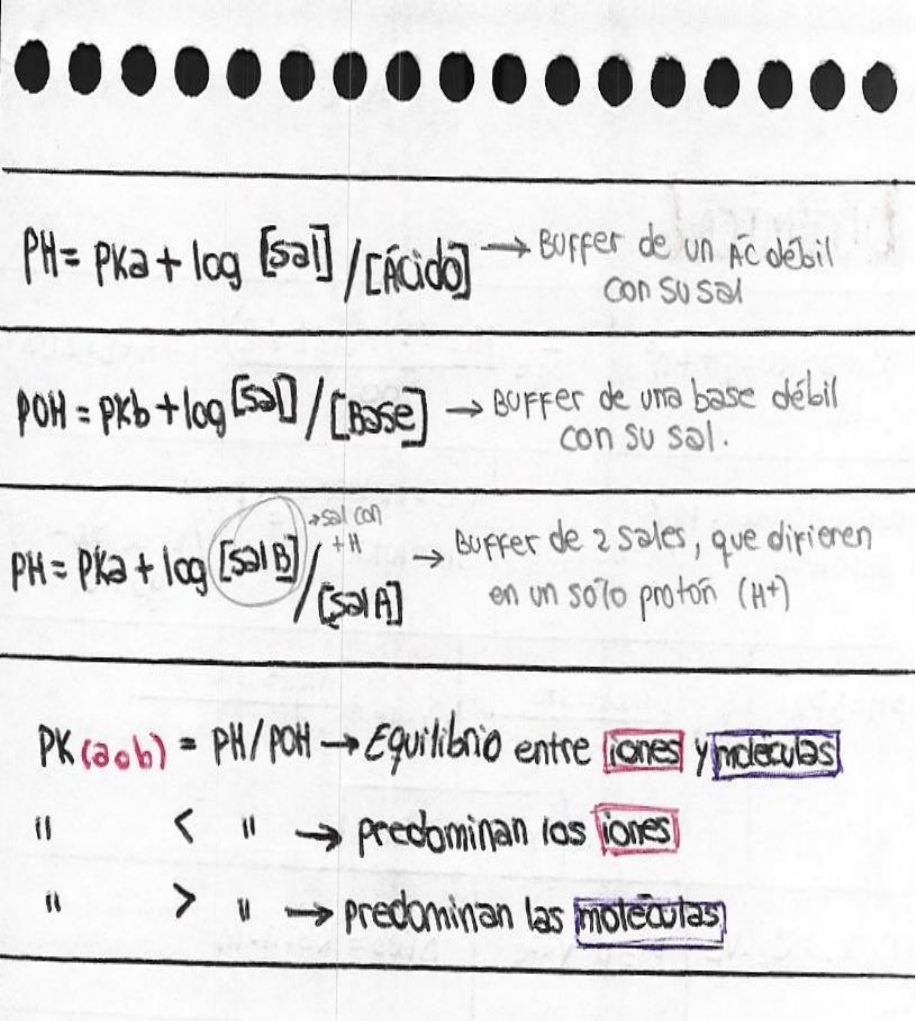 PH = PKa + log [sal] / [Ácido] → Buffer de un AC débil
con su sal
POH = PKb + log [sal] / [Base] → Buffer de una base débil
con su sal.
PH = PKa + log [sal B] / [sal A] → Buffer de 2 sales, que difieren
→ sal con
+H
en un sólo protón (H+)
PK (a o b) = PH/POH → Equilibrio entre iones y moléculas
" < " → predominan los iones
" > " → predominan las moléculas